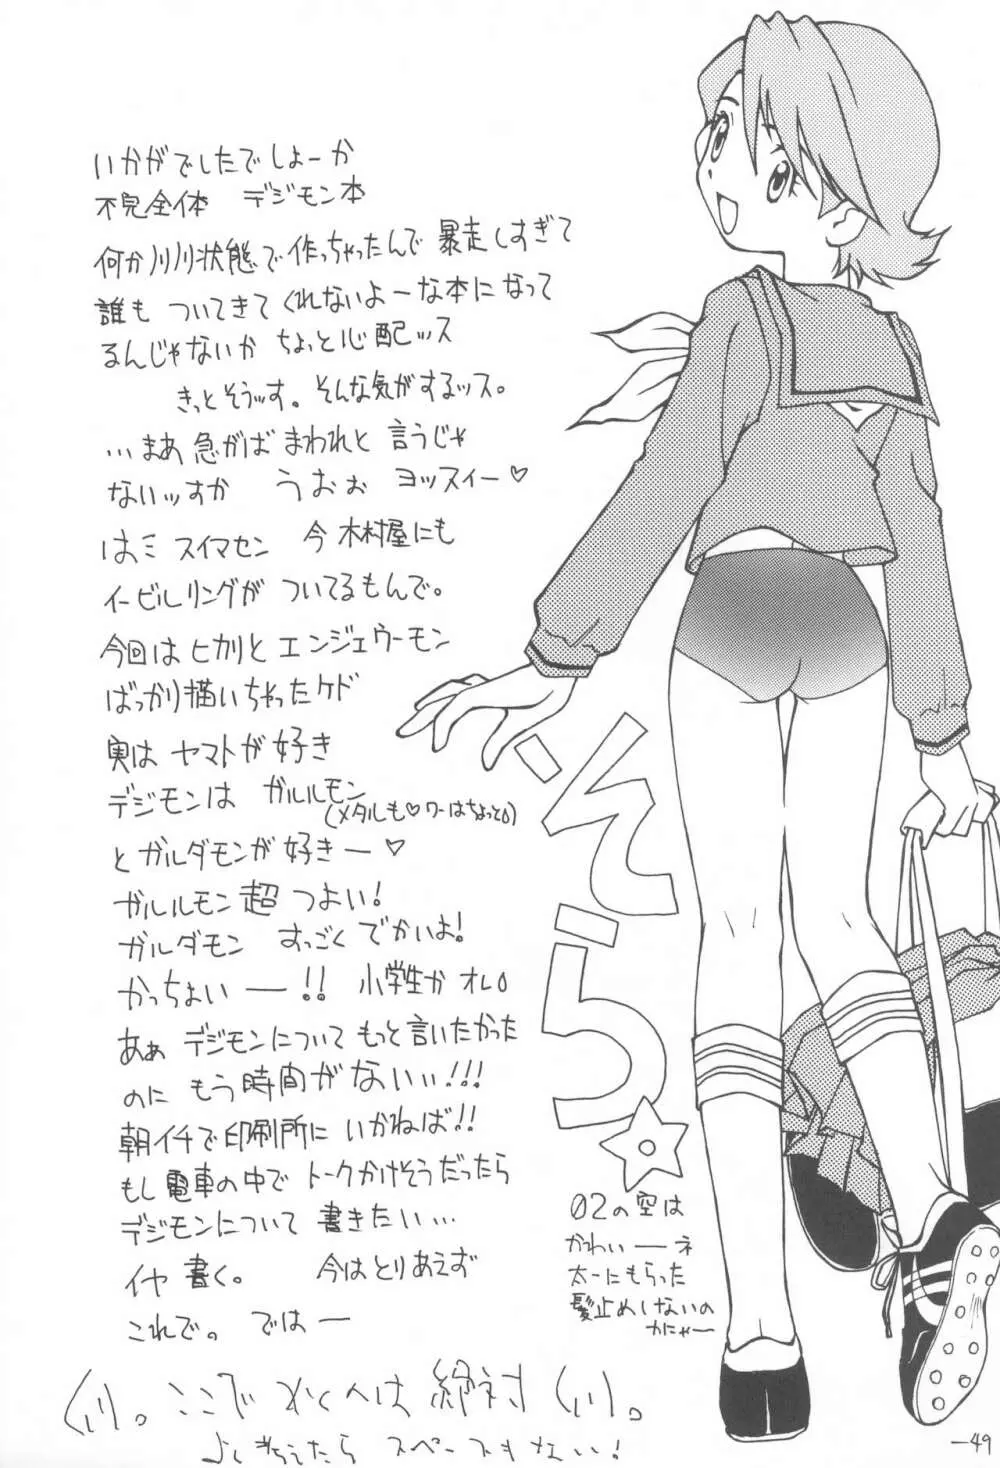 いかがでしたでしょーか
不完全体 デジモン本
何か川川状態で作っちゃったんで 暴走しすぎて
誰も ついてきてくれないよーな本になって
るんじゃないか ちょっと心配ッス
きっとそうッす。そんな気がするッス。
…まあ 急がば まわれと 言うじゃ
ないッすか うおぉ ヨッスィー♡
はミ スイマセン 今 木村屋にも
イービルリングが ついてるもんで。
今回は ヒカリと エンジェウーモン
ばっかり描いちゃったケド
実は ヤマトが好き
デジモンは ガルルモン
(メタルも♡ワーはちょっと)
とガルダモンが好きー♡
ガルルモン 超 つよい!
ガルダモン すっごくでかいよ!
かっちょいー!! 小学生か オレ。
あぁ デジモンについて もっと言いたかった
のに もう時間がないぃ!!!
朝イチで印刷所に いかねば!!
もし電車の中で トークかけそうだったら
デジモンについて 書きたい…
イヤ 書く。 今はとりあえず
これで。 ではー
そら
02の空は
かわいーネ
太一にもらった
髪止めしないの
かにゃー
スペースもない!
-49